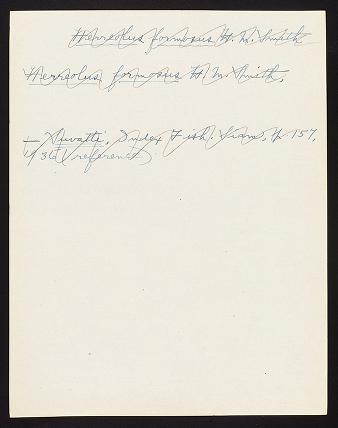 Herreolus formosus H. M. Smith
Herreolus formosus H. M. Smith,
— Suvatti, Index Fish. Siam, p. 157,
1936 (reference).